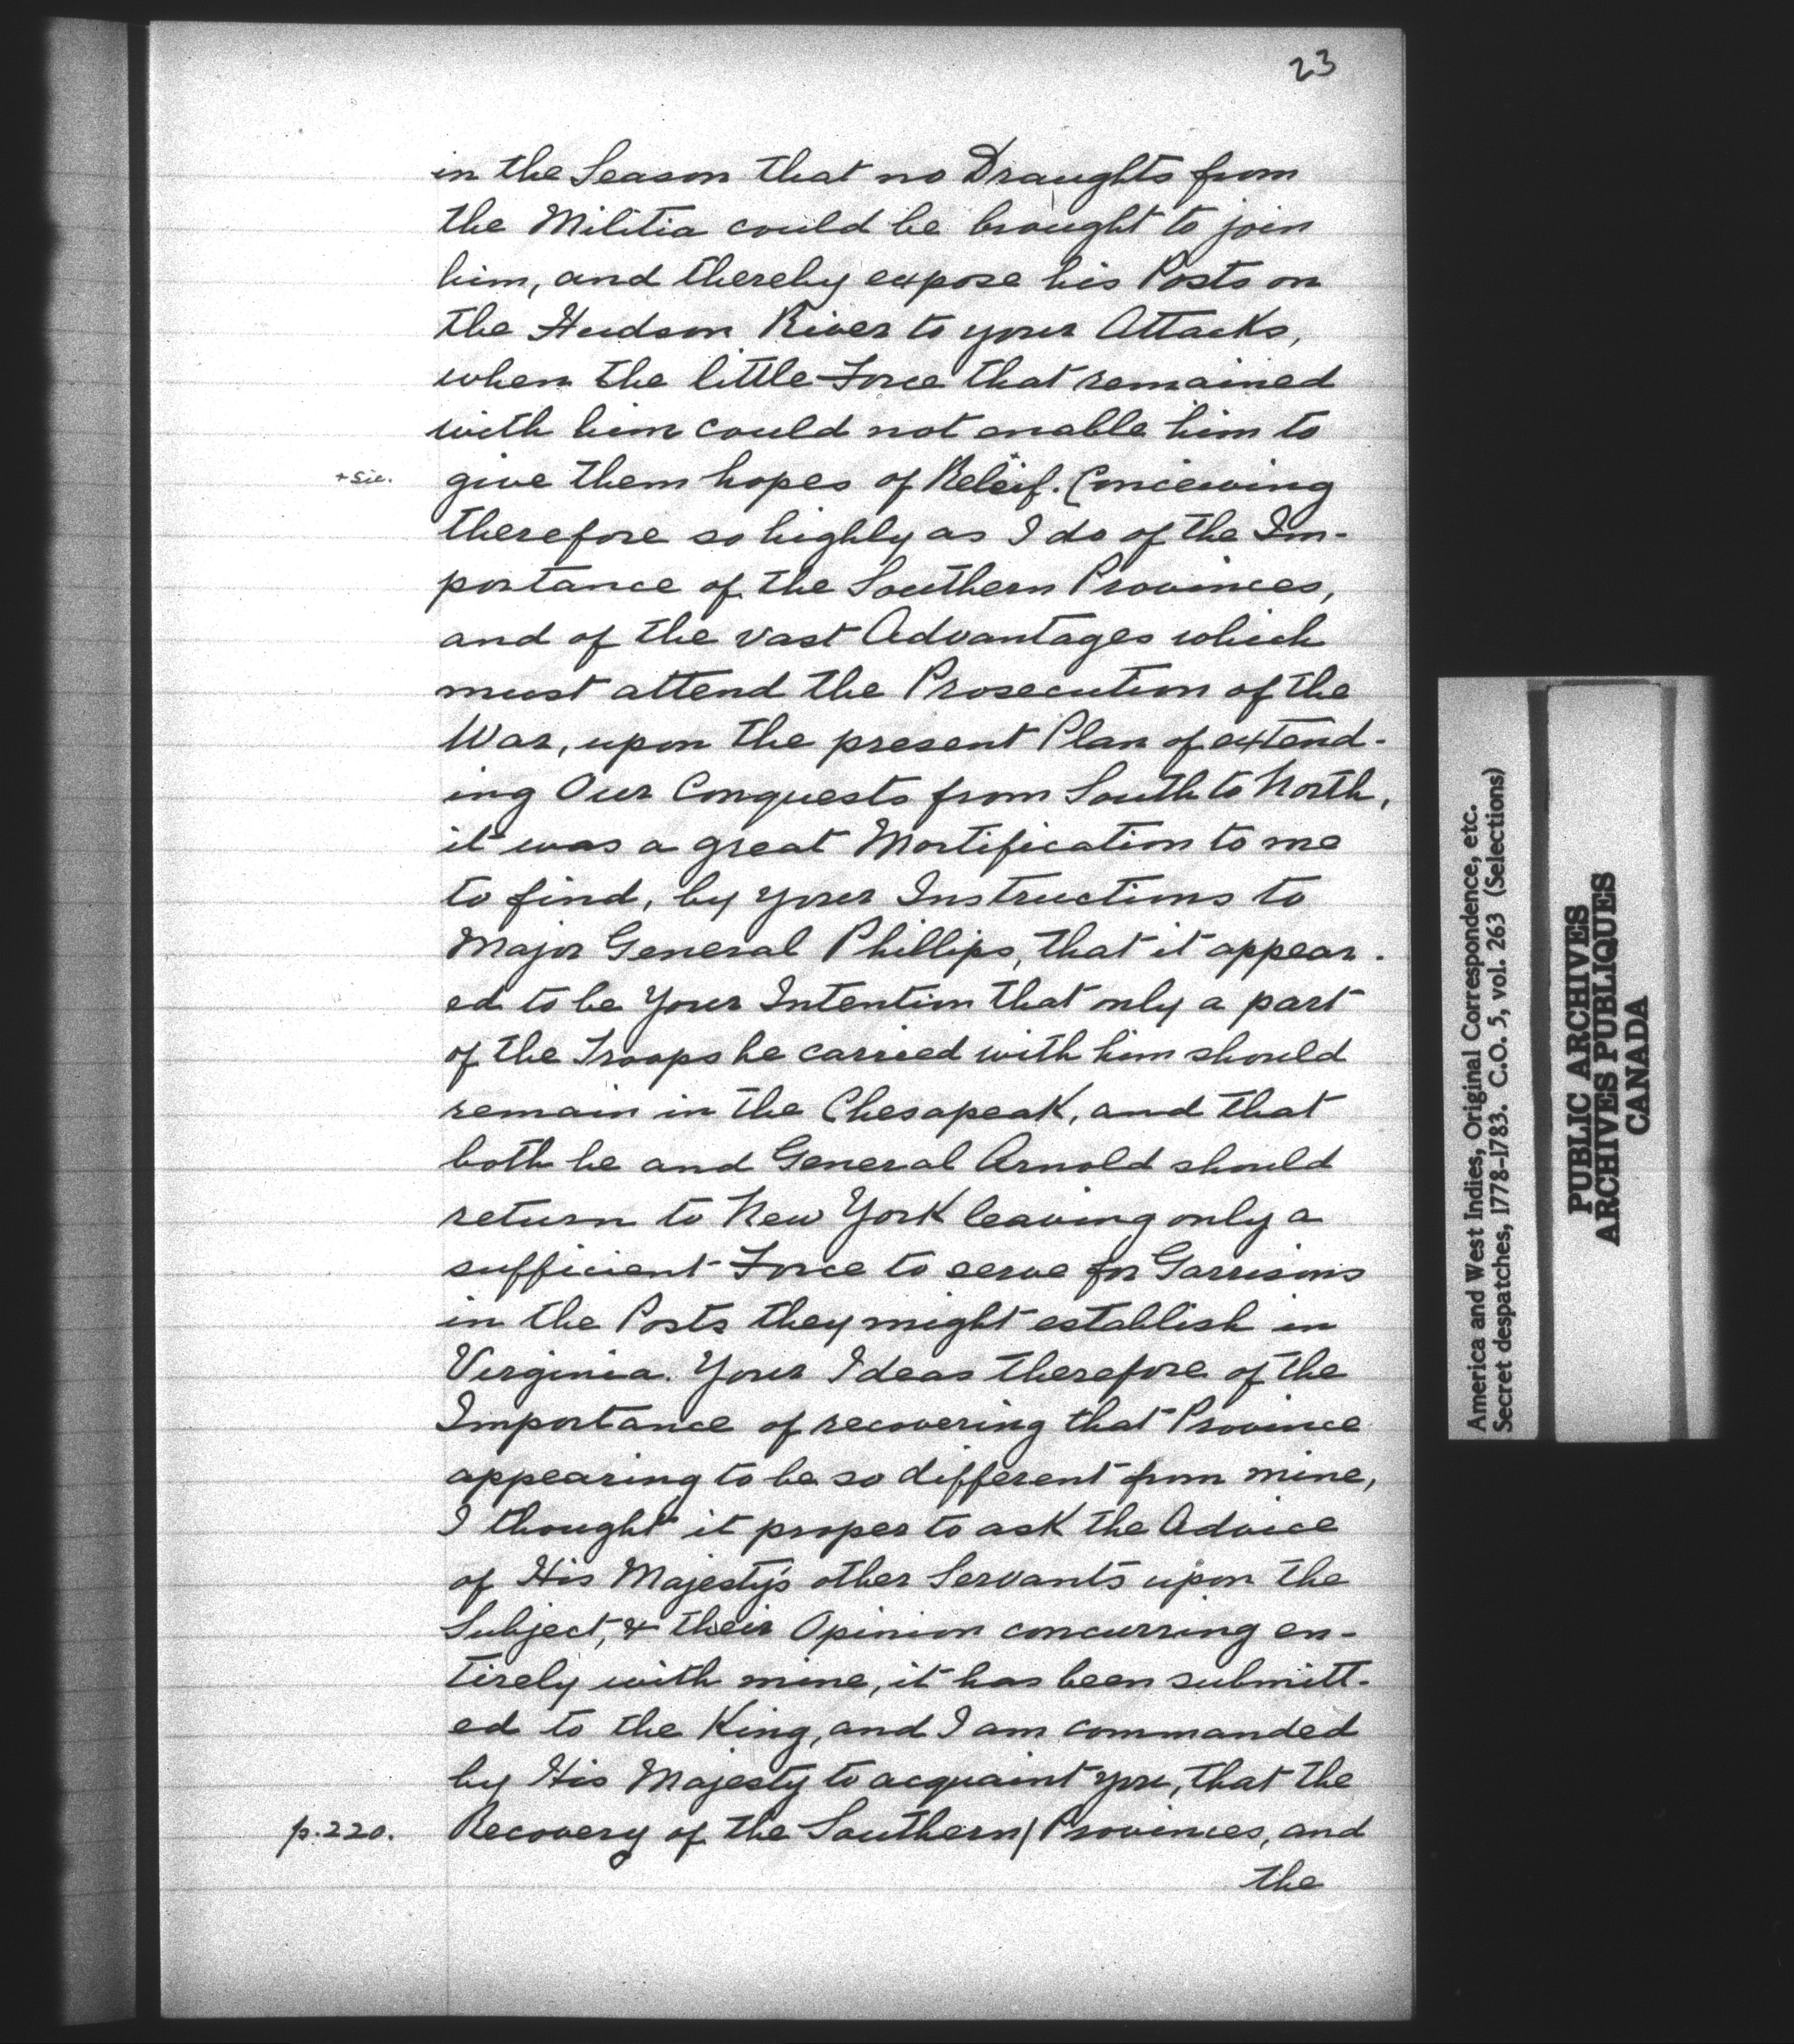 23
in the Season that no Draughts from
the Militia could be brought to join
him, and thereby expose his Posts on
the Hudson River to your Attacks,
when the little Force that remained
with him could not enable him to
+ sic. give them hopes of Releif. Conceiving
therefore so highly as I do of the Im-
portance of the Southern Provinces,
and of the vast Advantages which
must attend the Prosecution of the
War, upon the present Plan of extend-
ing Our Conquests from South to North,
it was a great Mortification to me
to find, by your Instructions to
Major General Phillips, that it appear-
ed to be Your Intention that only a part
of the Troops he carried with him should
remain in the Chesapeak, and that
both he and General Arnold should
return to New York leaving only a
sufficient Force to serve for Garrisons
in the Posts they might establish in
Virginia. Your Ideas therefore of the
Importance of recovering that Province
appearing to be so different from mine,
I thought it proper to ask the Advice
of His Majesty's other Servants upon the
Subject, & their Opinion concurring en-
tirely with mine, it has been submitt-
ed to the King, and I am commanded
by His Majesty to acquaint you, that the
p. 220. Recovery of the Southern/Provinces, and
the
America and West Indies, Original Correspondence, etc.
Secret despatches, 1778-1783. C.O. 5, vol. 263 (Selections)
PUBLIC ARCHIVES
ARCHIVES PUBLIQUES
CANADA